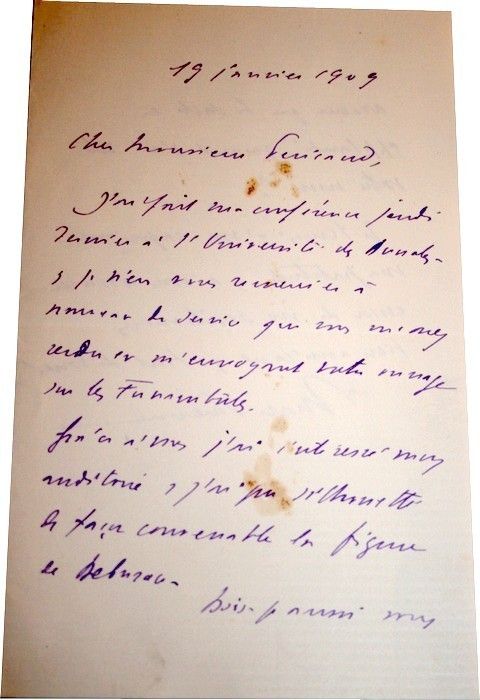 19 janvier 1909
Cher Monsieur Péricaud,
J'ai fait ma conférence jeudi
dernier à l'Université des Annales
& je viens vous remercier à
nouveau du service que vous m'avez
rendu en m'envoyant votre ouvrage
sur les Funambules.
Grâce à vous j'ai intéressé mon
auditoire & j'ai pu silhouetter
de façon convenable la figure
de Debureau.
Dois-je aussi vous